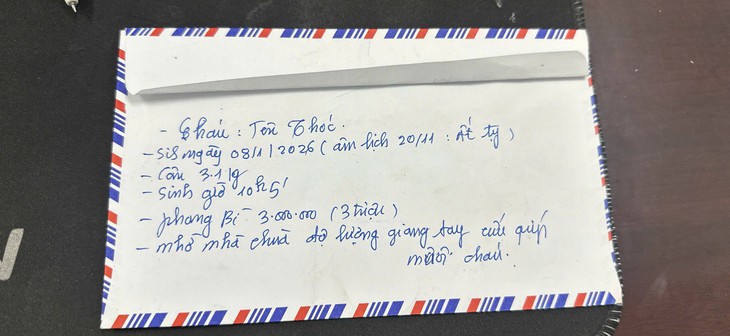 - Cháu : Tên Thóc.
- SiS ngày 08/1/2026 (âm lịch 20/11 : Ất tỵ)
- Cân 3.1 kg
- Sinh giờ 10h5'
- phong Bì 3.000.000 (3 triệu)
- nhờ nhà chùa độ lượng giang tay cứu giúp
cháu.